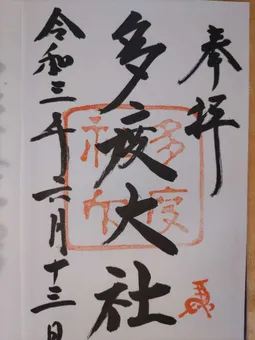 奉拝
多度大社
令和三年六月十三日
多度